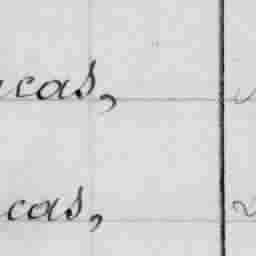 cas,
cas,